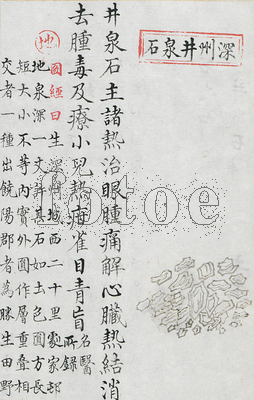 深州井泉石
井泉石主諸熱治眼腫痛解心臟熱結消
去腫毒及療小兒熱疳雀目青盲名醫所錄
地
圖經曰生深州城西二十里劇家邨
地泉深一丈許其石如土色圓方長
短大小不等内實外圓作層重疊相
交者一種出饒陽郡者為勝生田野
fotoe